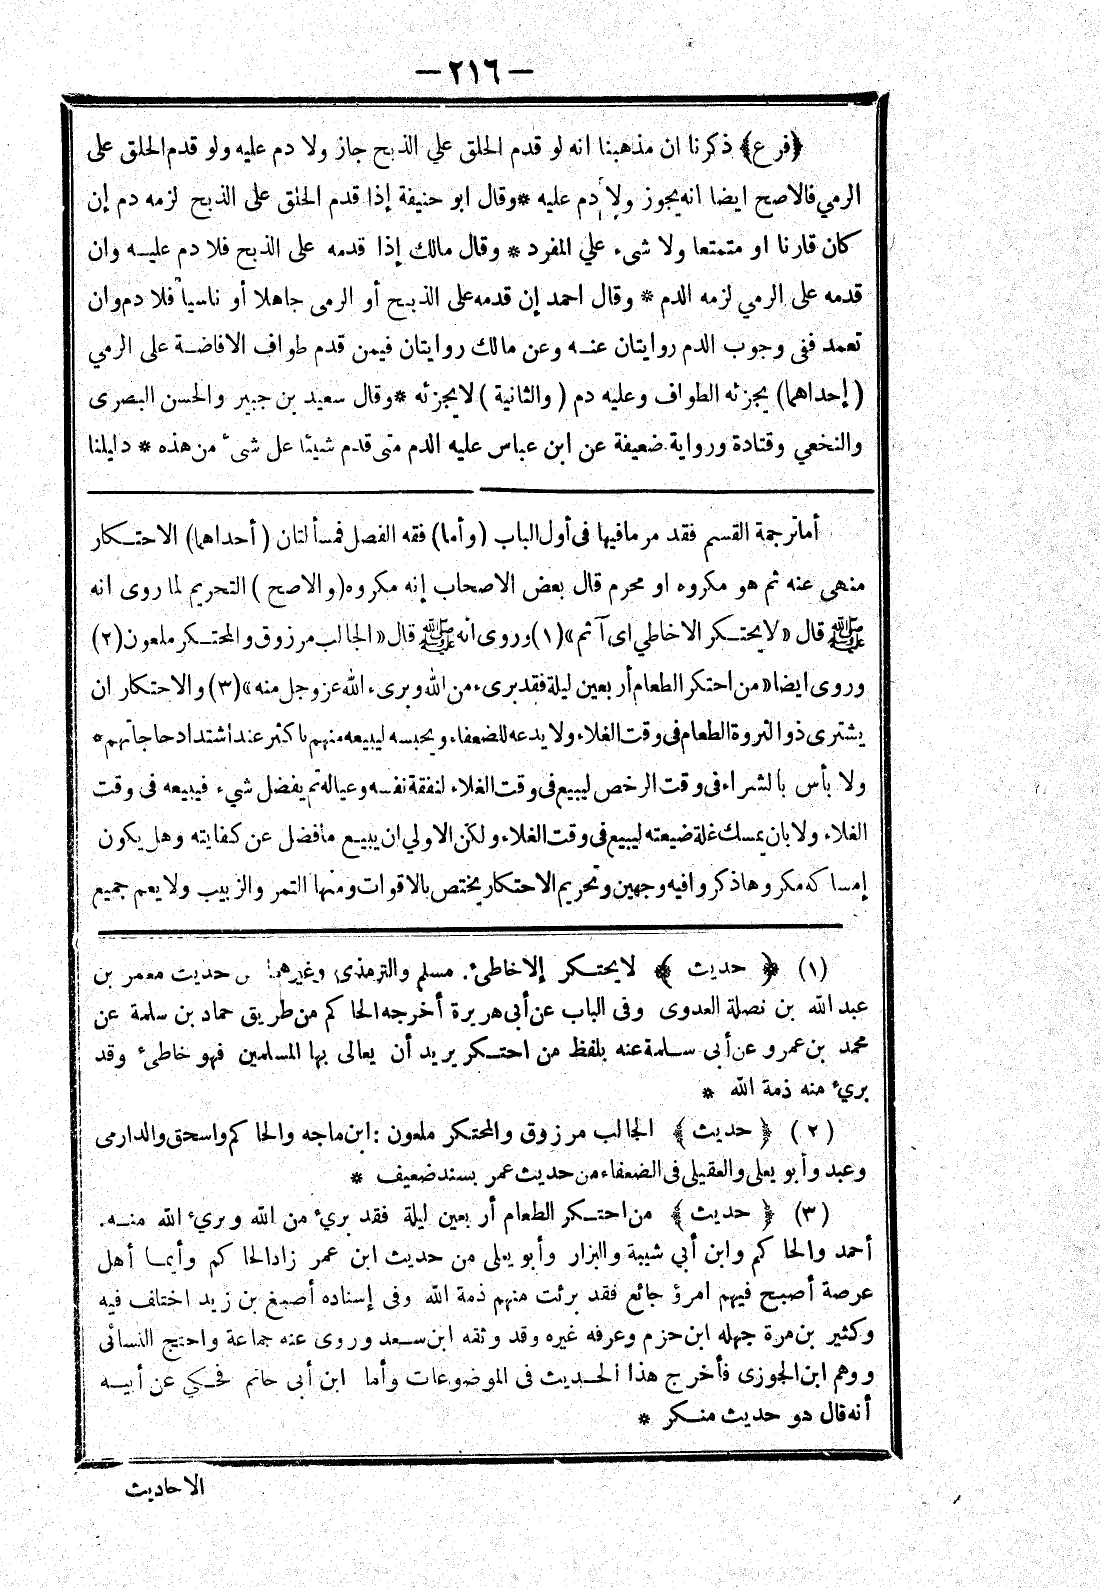 — ٢١٦ —
﴿فرع﴾ ذكرنا ان مذهبنا انه لو قدم الحلق علي الذبح جاز ولا دم عليه ولو قدم الحلق على
الرمي فالاصح ايضا انه يجوز ولا دم عليه * وقال ابو حنيفة إذا قدم الحلق على الذبح لزمه دم إن
كان قارنا او متمتعا ولا شىء علي المفرد * وقال مالك إذا قدمه على الذبح فلا دم عليه وان
قدمه على الرمي لزمه الدم * وقال احمد إن قدمه على الذبح أو الرمى جاهلا أو ناسيا فلا دم وان
تعمد ففى وجوب الدم روايتان عنه وعن مالك روايتان فيمن قدم طواف الافاضة على الرمي
(إحداهما) يجزئه الطواف وعليه دم (والثانية) لايجزئه * وقال سعيد بن جبير والحسن البصرى
والنخعي وقتادة ورواية ضعيفة عن ابن عباس عليه الدم متى قدم شيئا على شىء من هذه * دليلنا
أما ترجمة القسم فقد مر مافيها فى أول الباب (وأما) فقه الفصل فمسألتان (أحداهما) الاحتكار
منهى عنه ثم هو مكروه او محرم قال بعض الاصحاب إنه مكروه (والاصح) التحريم لما روى انه
ﷺ قال «لايحتكر الا خاطي اى آثم» (١) وروى انه ﷺ قال «الجالب مرزوق والمحتكر ملعون (٢)
وروى ايضا «من احتكر الطعام أربعين ليلة فقد برىء من الله وبرىء الله عزوجل منه» (٣) والاحتكار ان
يشترى ذو الثروة الطعام فى وقت الغلاء ولا يدعه للضعفاء ويحبسه ليبيعه منهم باكثر عند اشتداد حاجاتهم *
ولا بأس بالشراء فى وقت الرخص ليبيع فى وقت الغلاء لنفقة نفسه وعياله ثم يفضل شيء فيبيعه فى وقت
الغلاء ولا بان يمسك غلة ضيعته ليبيع فى وقت الغلاء ولكن الاولي ان يبيع مافضل عن كفايته وهل يكون
إمساكه مكروها ذكروا فيه وجهين وتحريم الاحتكار يختص بالاقوات ومنها التمر والزبيب ولا يعم جميع
(١) ﴿ حديث ﴾ لايحتكر إلا خاطىء. مسلم والترمذى وغيرهما من حديث معمر بن
عبد الله بن نضلة العدوى وفى الباب عن أبى هريرة أخرجه الحاكم من طريق حماد بن سلمة عن
محمد بن عمرو عن أبي سلمة عنه بلفظ من احتكر يريد أن يغالى بها المسلمين فهو خاطىء وقد
برىء منه ذمة الله *
(٢) ﴿ حديث ﴾ الجالب مرزوق والمحتكر ملعون: ابن ماجه والحاكم واسحق والدارمى
وعبد وأبو يعلى والعقيلى فى الضعفاء من حديث عمر بسند ضعيف *
(٣) ﴿ حديث ﴾ من احتكر الطعام أربعين ليلة فقد برىء من الله وبرىء الله منه.
أحمد والحاكم وابن أبي شيبة والبزار وأبو يعلى من حديث ابن عمر زاد الحاكم وأيما أهل
عرصة أصبح فيهم امرؤ جائع فقد برئت منهم ذمة الله وفى إسناده أصبغ بن زيد اختلف فيه
وكثير بن مرة جهله ابن حزم وعرفه غيره وقد وثقه ابن سعد وروى عنه جماعة واحتج النسائى
ووهم ابن الجوزى فأخرج هذا الحديث فى الموضوعات وأما ابن أبى حاتم فحكي عن أبيه
أنه قال هو حديث منكر *
الاحاديث